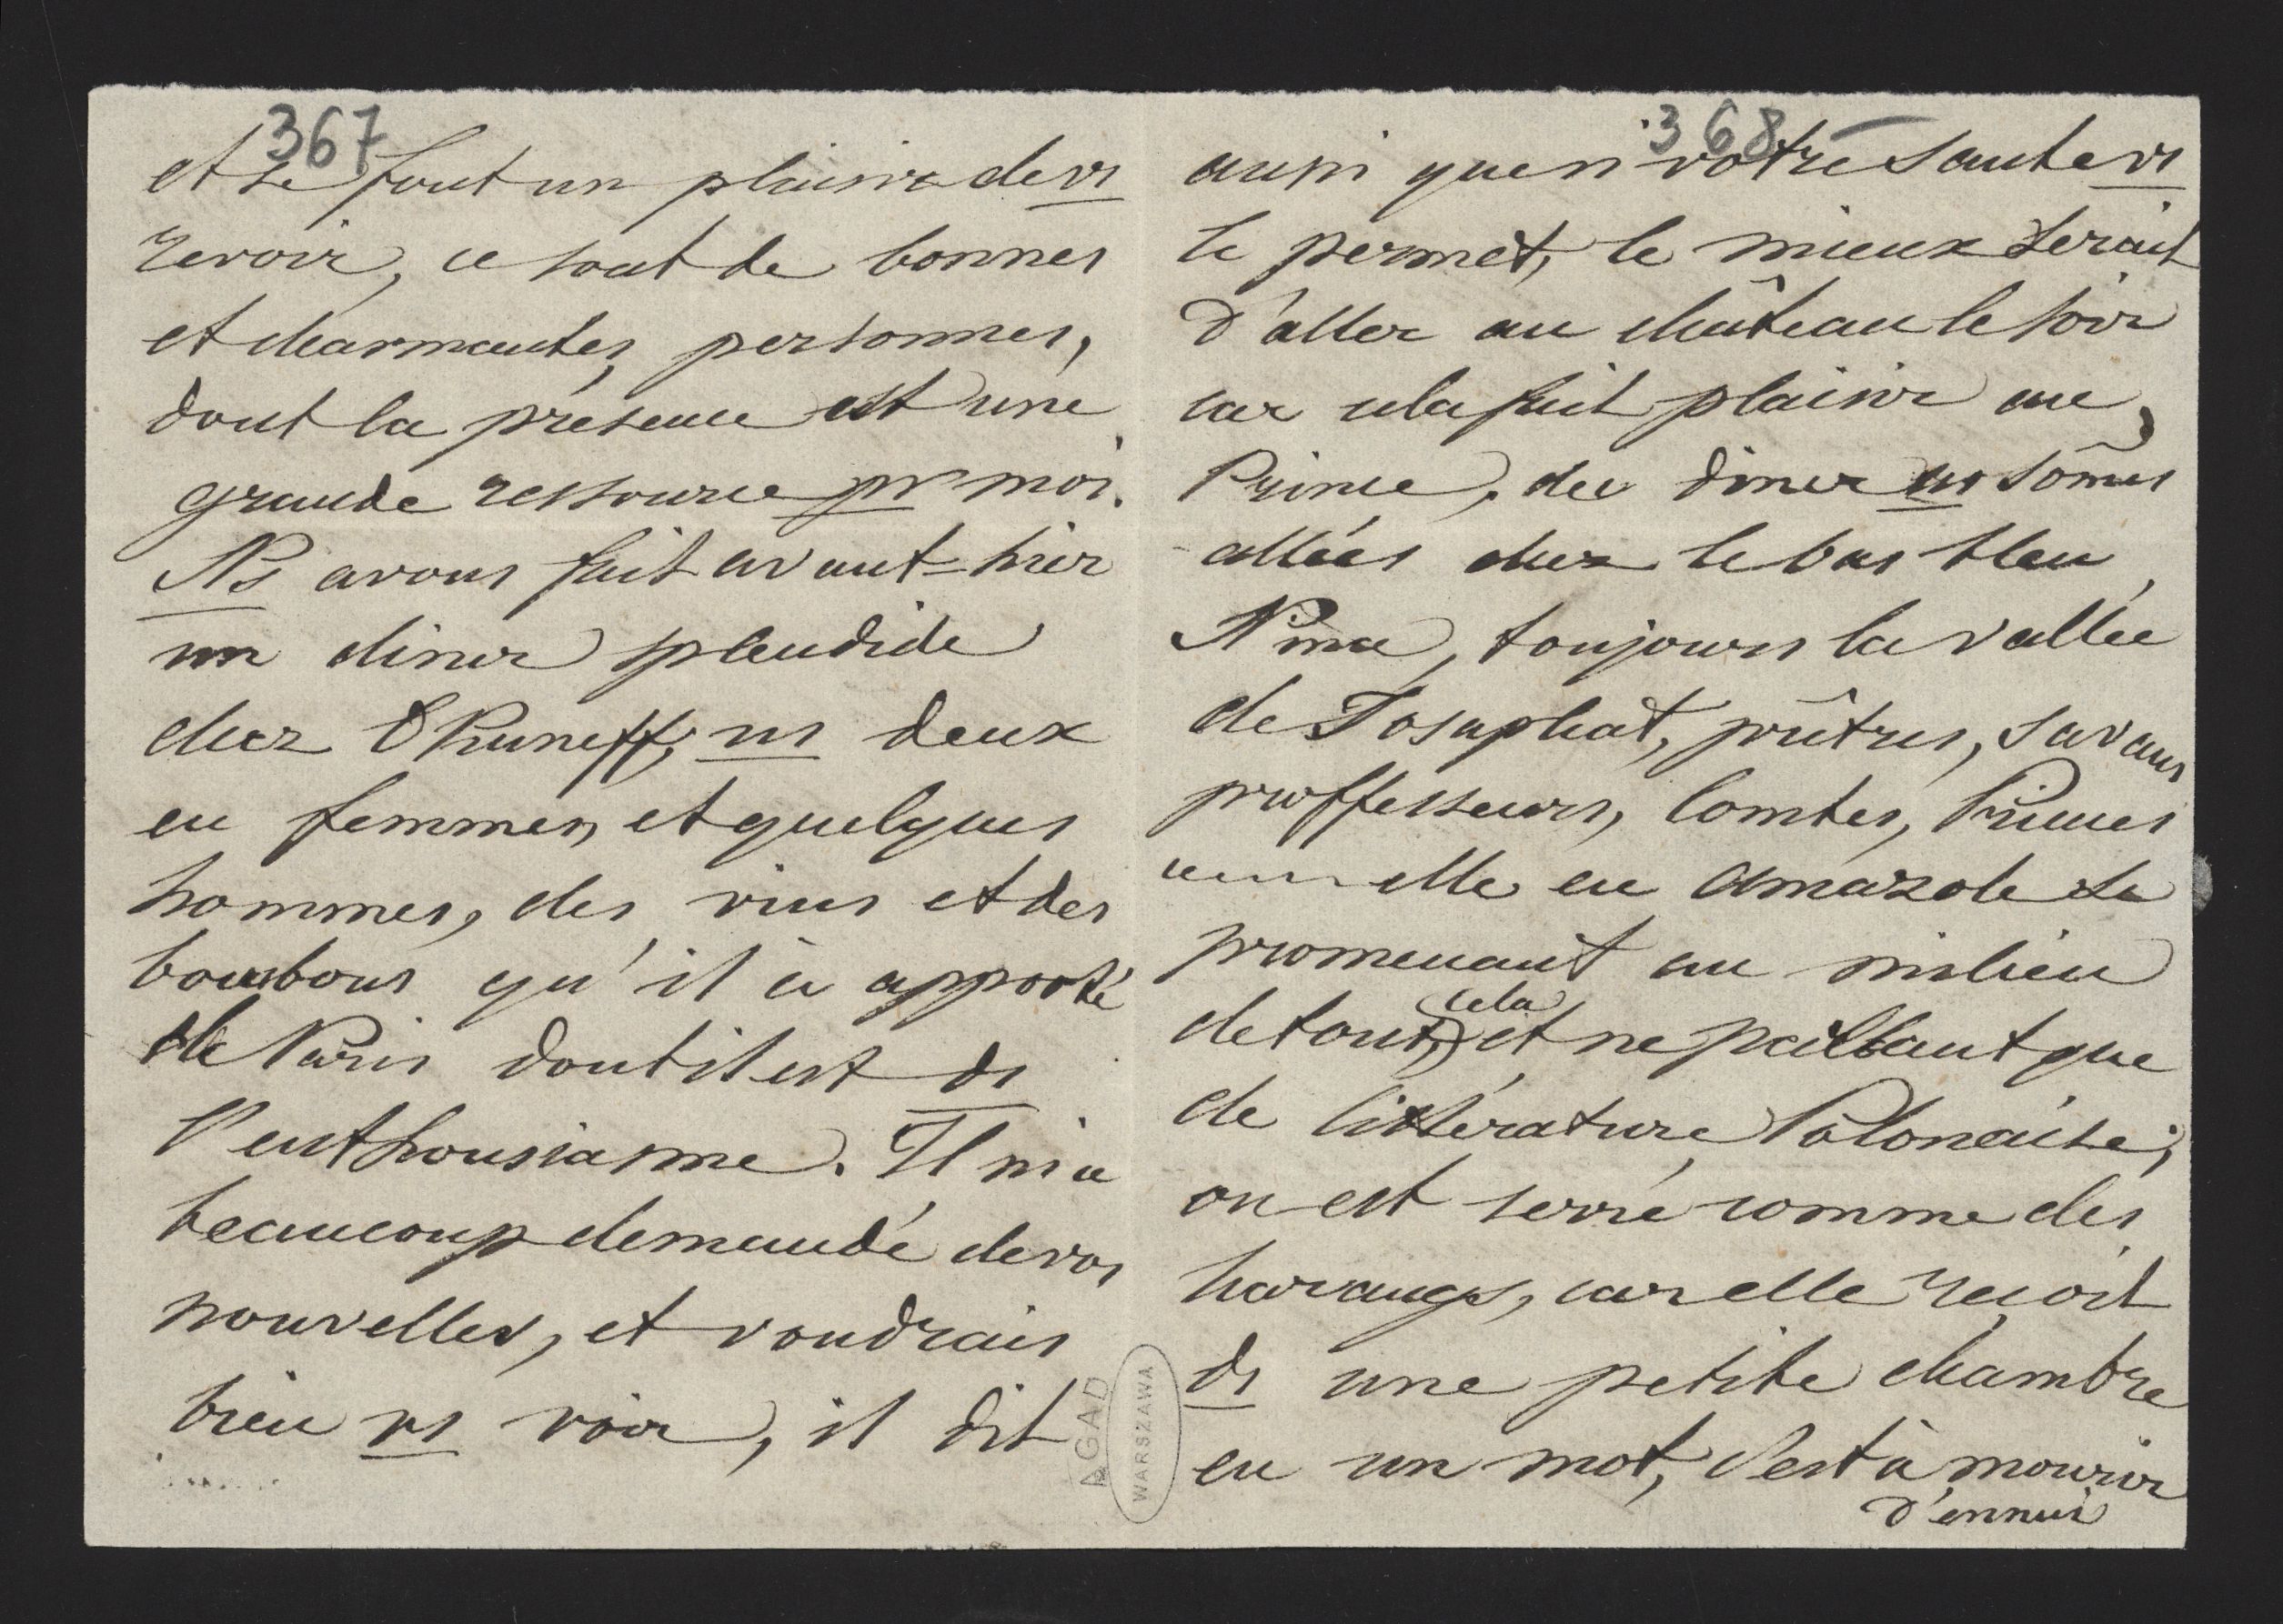 367
et se font un plaisir de vs
revoir, ce sont de bonnes
et charmantes personnes,
dont la présence est une
grande ressource pr moi.
Ns avons fait avant-hier
un diner splendide
chez Okuneff, ns deux
en femmes, et quelques
hommes, des vins et des
bonbons qu'il à apporté
de Paris dont il est ds
l'enthousiasme. Il m'a
beaucoup demandé de vos
nouvelles, et voudrais
bien vs voir, il dit
368
aussi que si votre santé vs
le permet, le mieux serait
d'aller au château le soir
car cela fait plaisir au
Prince, de diner ns sômes
allées chez le bas bleu
Nina, toujours la vallée
de Josaphat, prêtres, savans
proffesseurs, Comtes, Princes
elle en Amazole se
promenant au milieu
de tout cela et ne parlant que
de littérature Polonaise;
on est serré comme des
harangs, car elle reçoit
ds une petite chambre
en un mot, c'est à mourir
d'ennui
AGAD
WARSZAWA